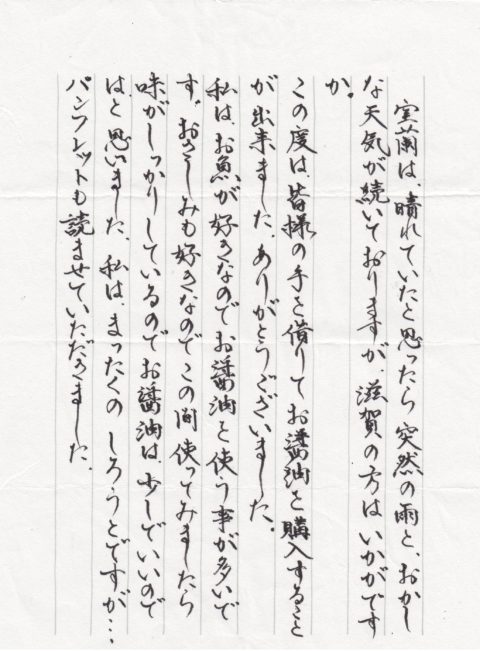 室蘭は、晴れていたと思ったら突然の雨と、おかし
な天気が続いておりますが、滋賀の方はいかがです
か。
この度は、皆様の手を借りてお醤油を購入すること
が出来ました。ありがとうございました。
私は、お魚が好きなのでお醤油を使う事が多いで
す。おさしみも好きなのでこの間使ってみましたら
味がしっかりしているのでお醤油は、少しでいいので
はと思いました。私は、まったくの しろうとですが…
パンフレットも読ませていただきました。